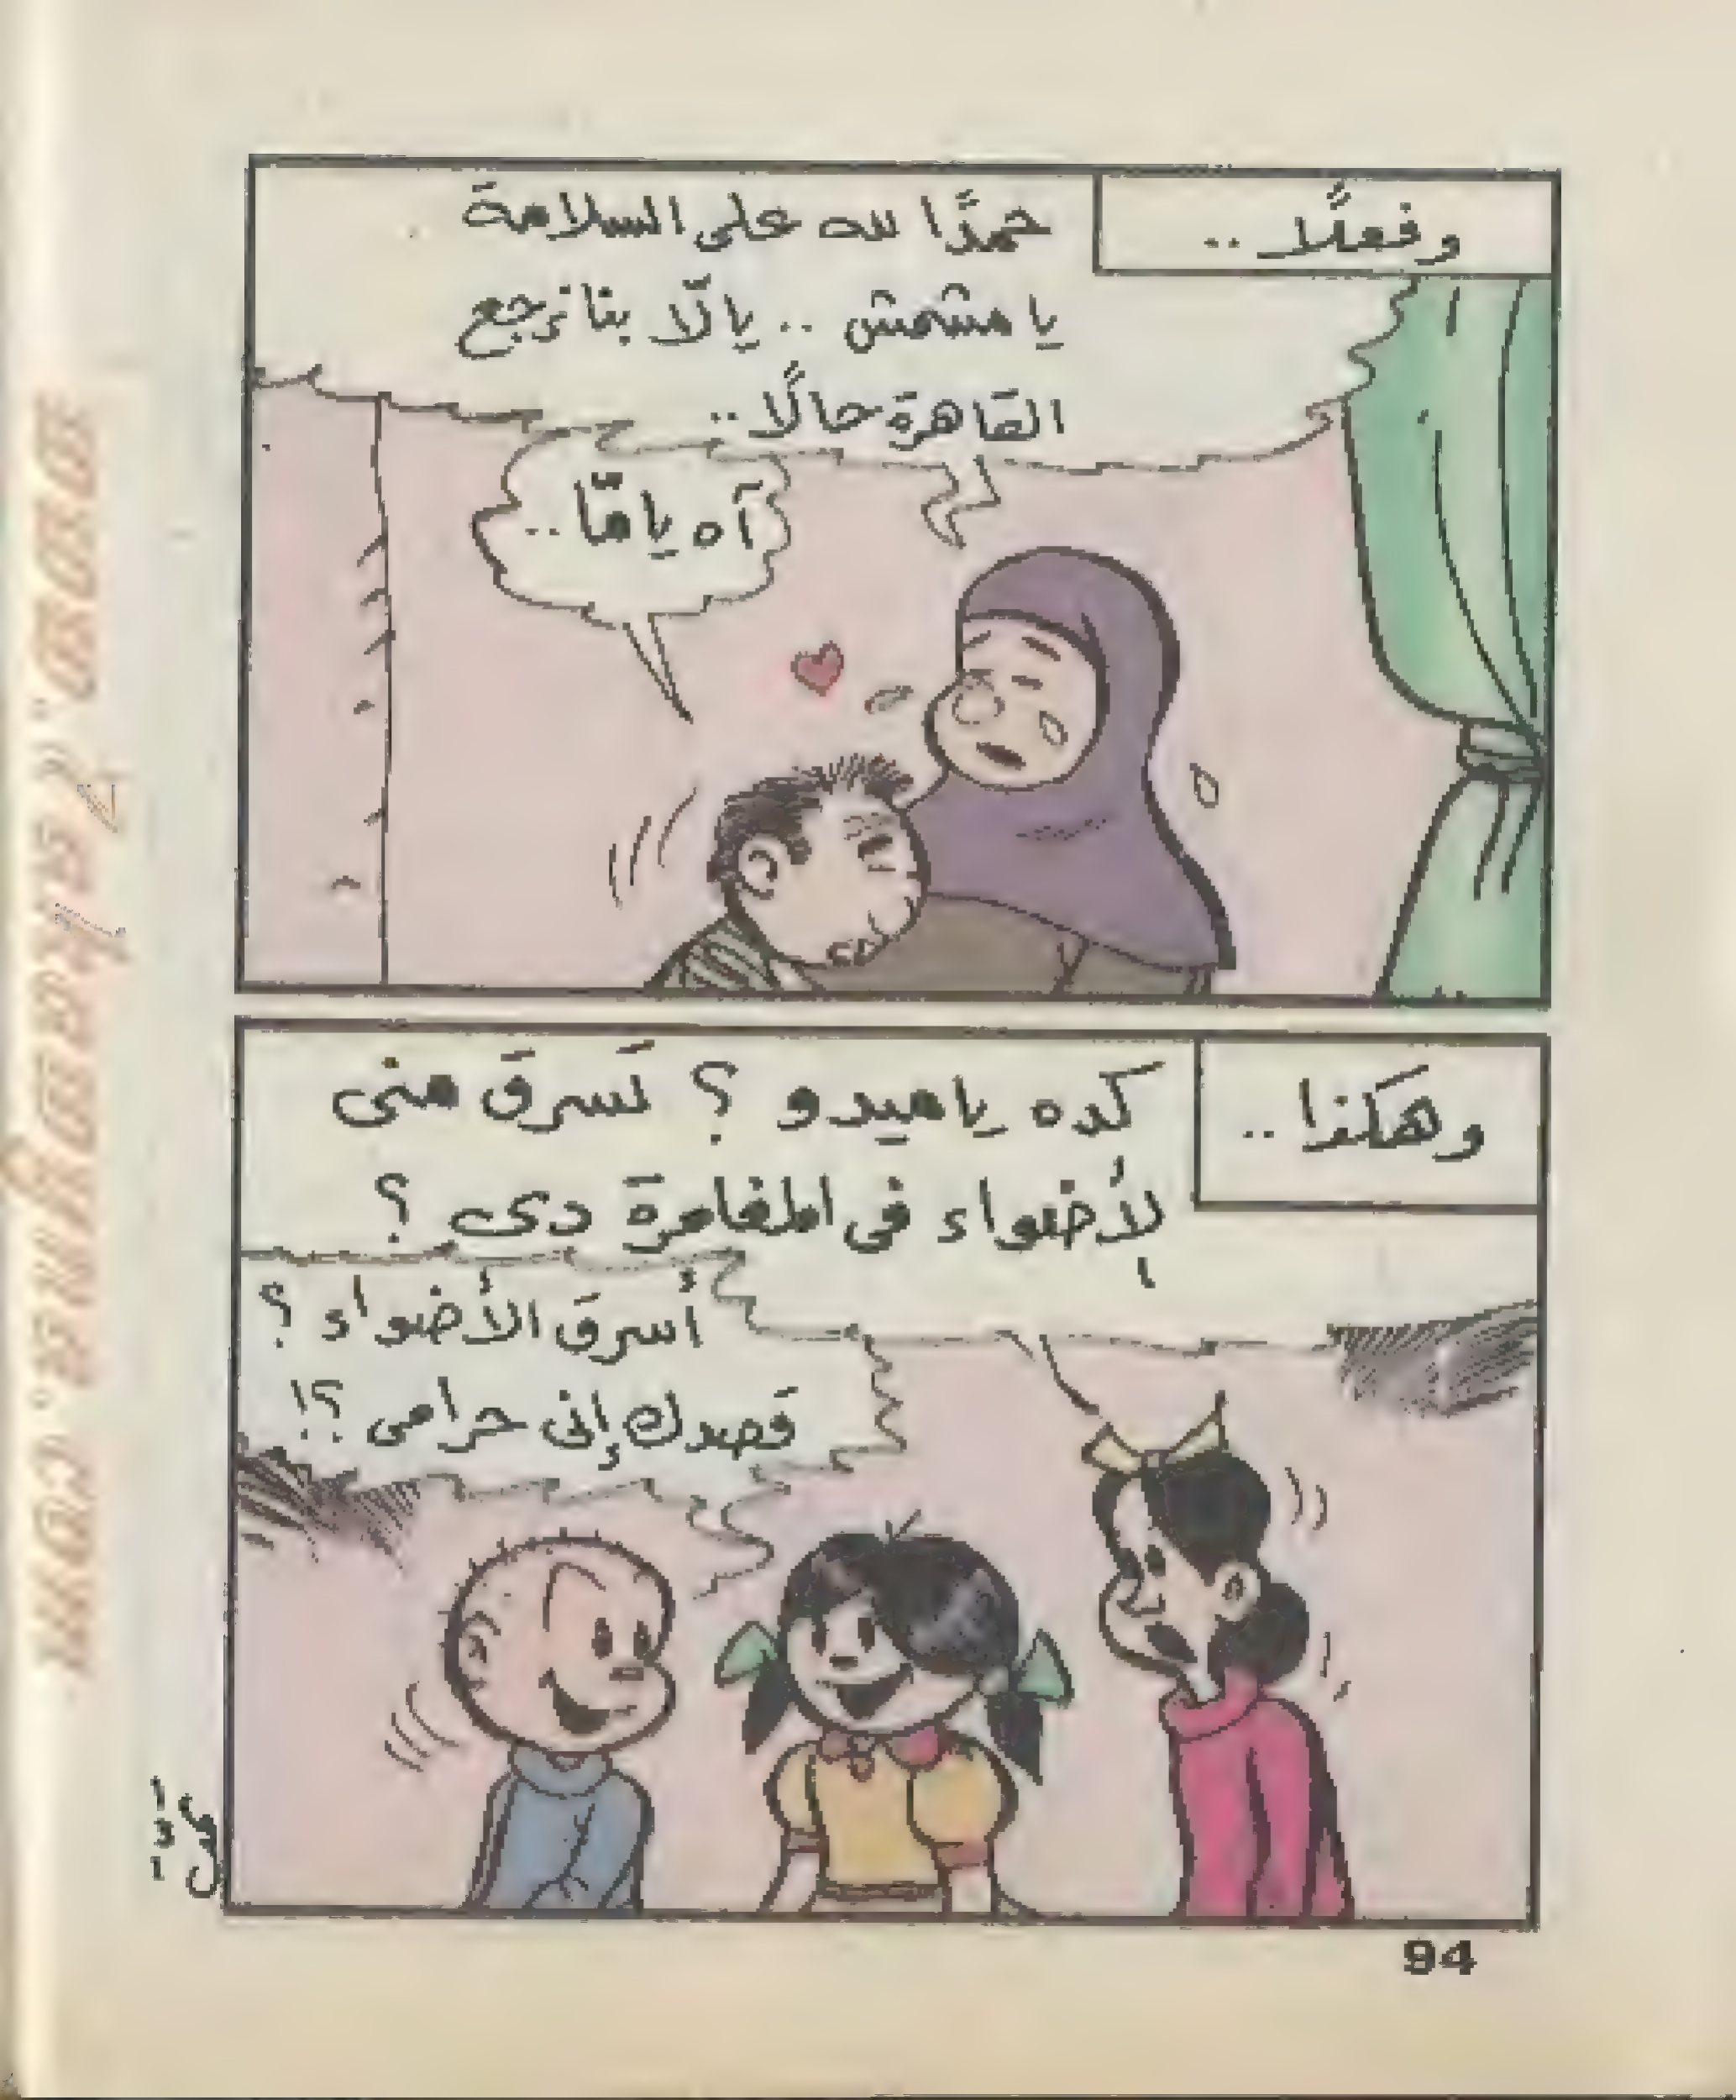 وفعلًا ..
حمدًا لله على السلامة
يا مشمش .. يالّا بنا نرجع
القاهرة حالًا ..
آه يامّا ..
وهكذا ..
كده ياميدو ؟ تَسرقَ منى
الأضواء فى المغامرة دى ؟
أسرقَ الأضواء ؟
قصدك إنى حرامى ؟!
94